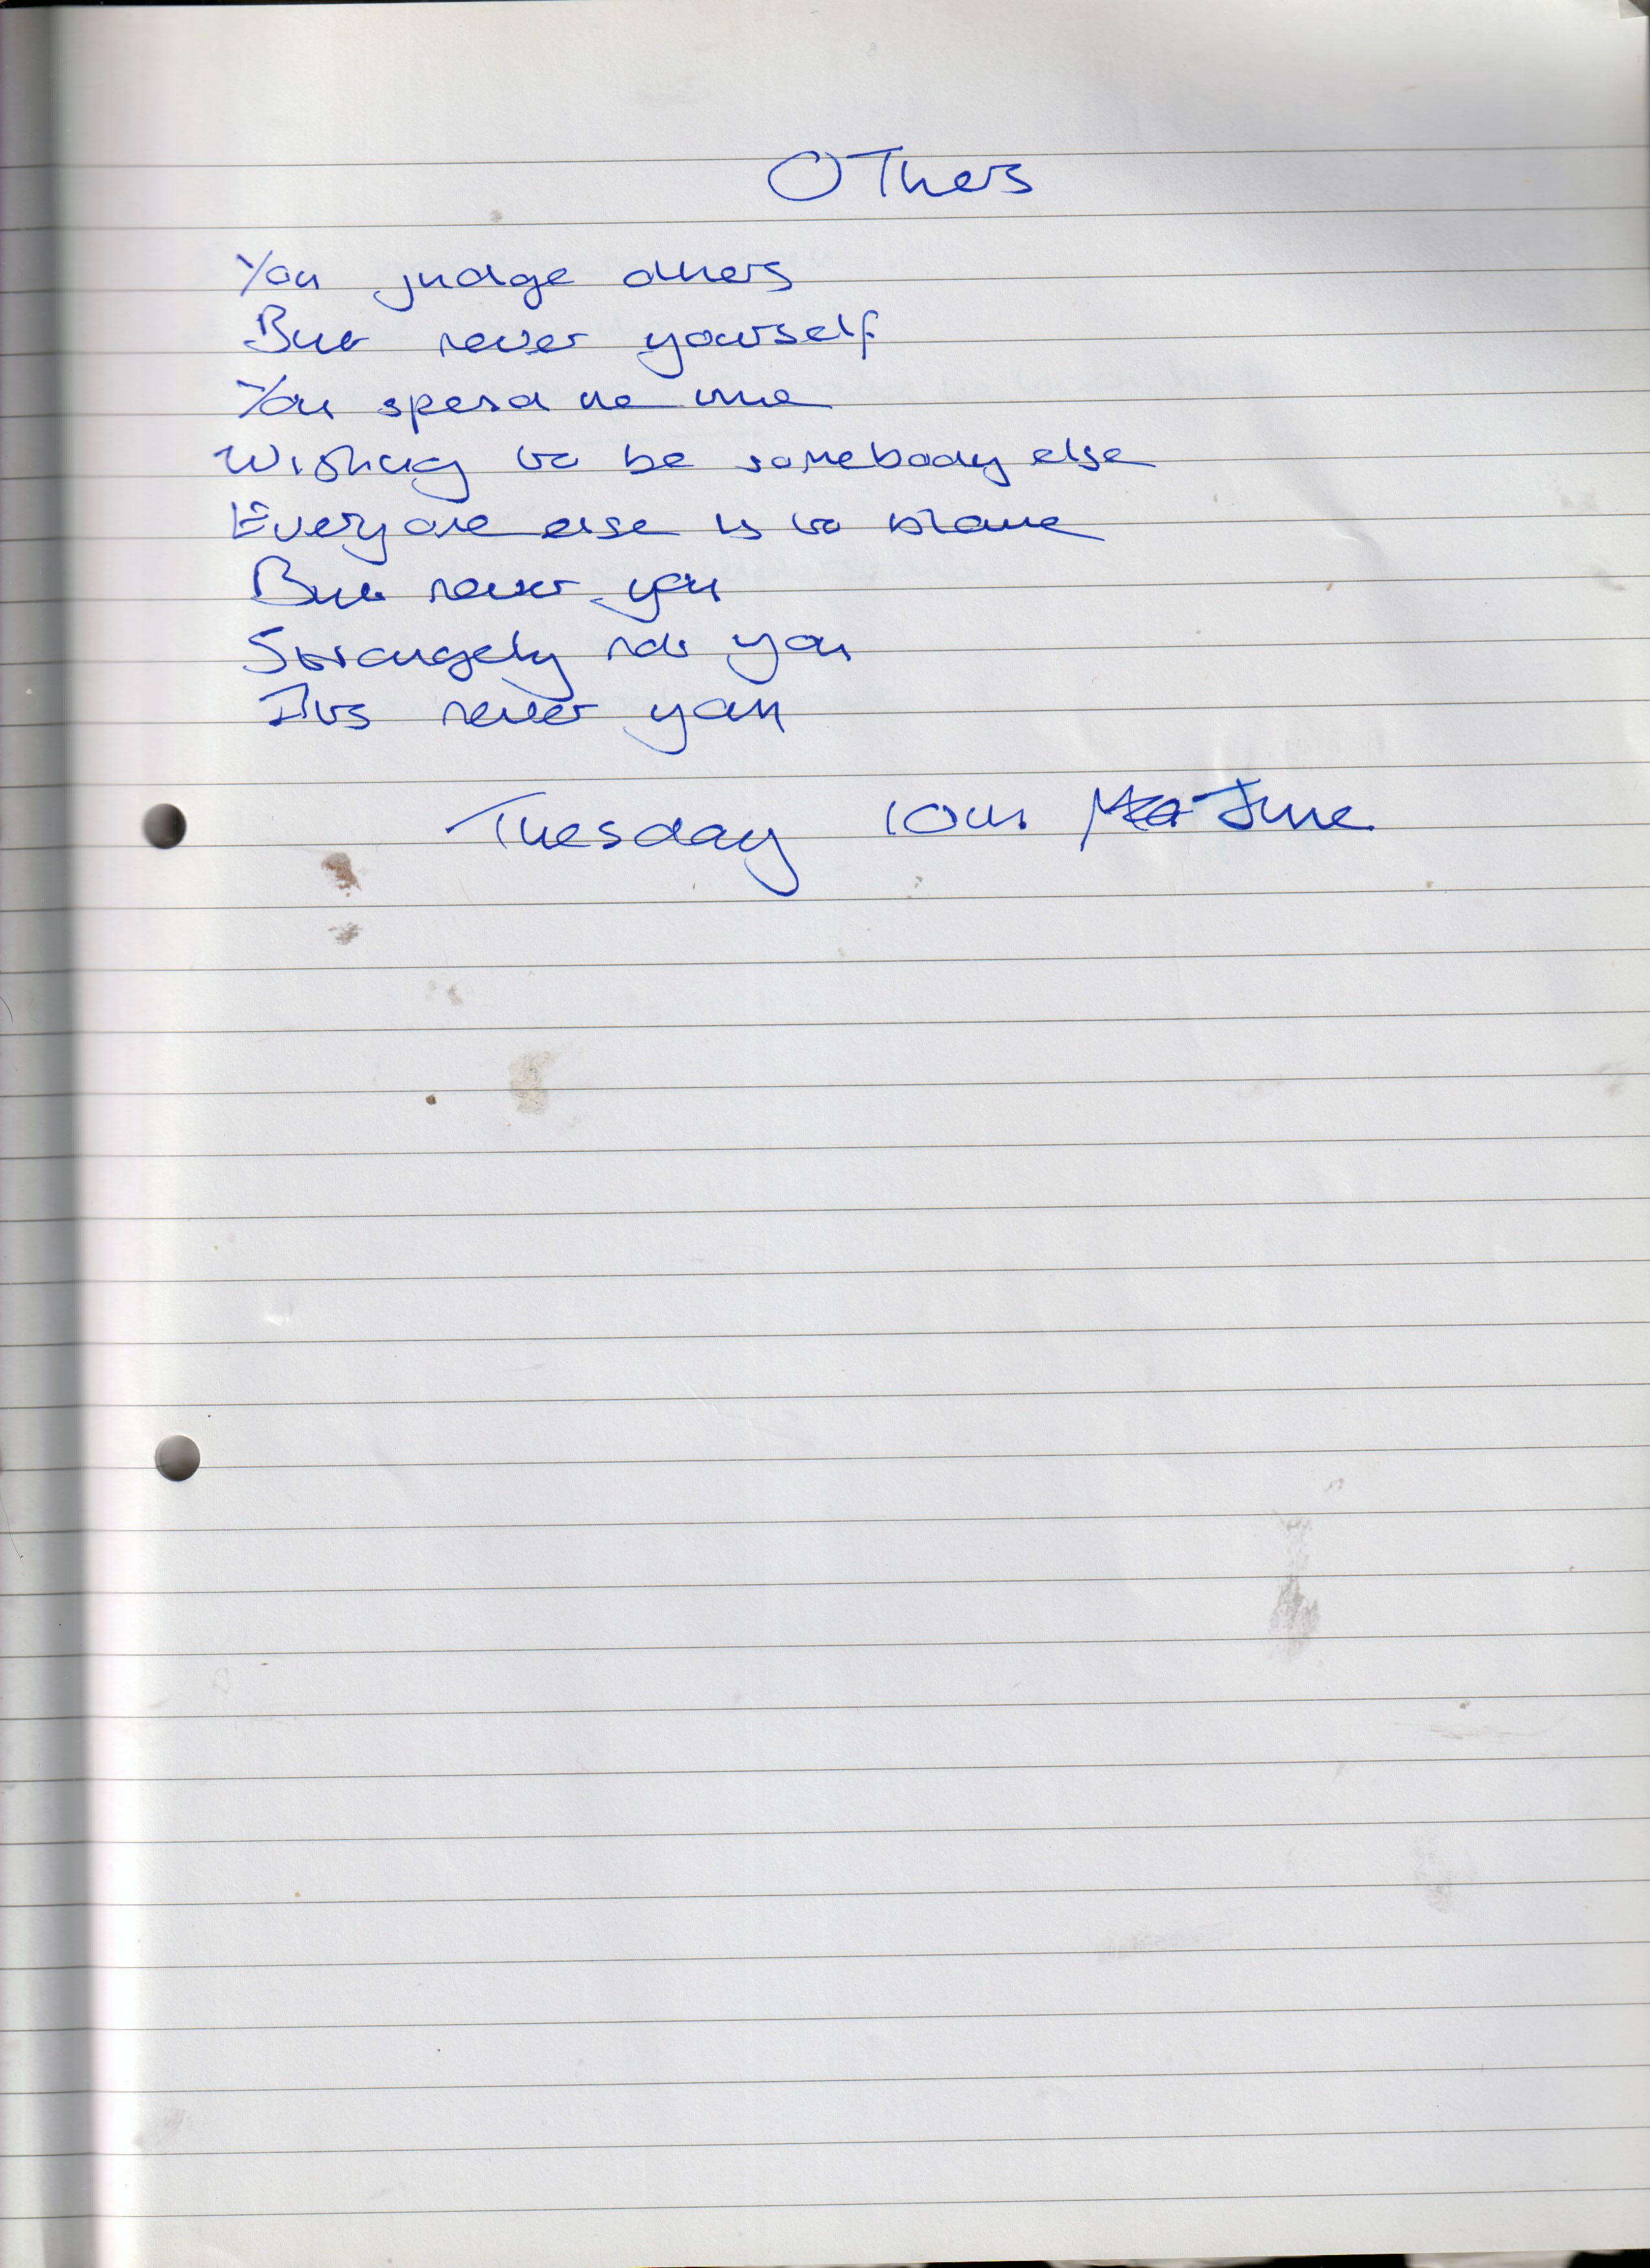 OThers
You judge others
But never yourself
You spend the time
Wishing to be somebody else
Everyone else is to blame
But never you
Strangely not you
Its never you
Tuesday 10th June